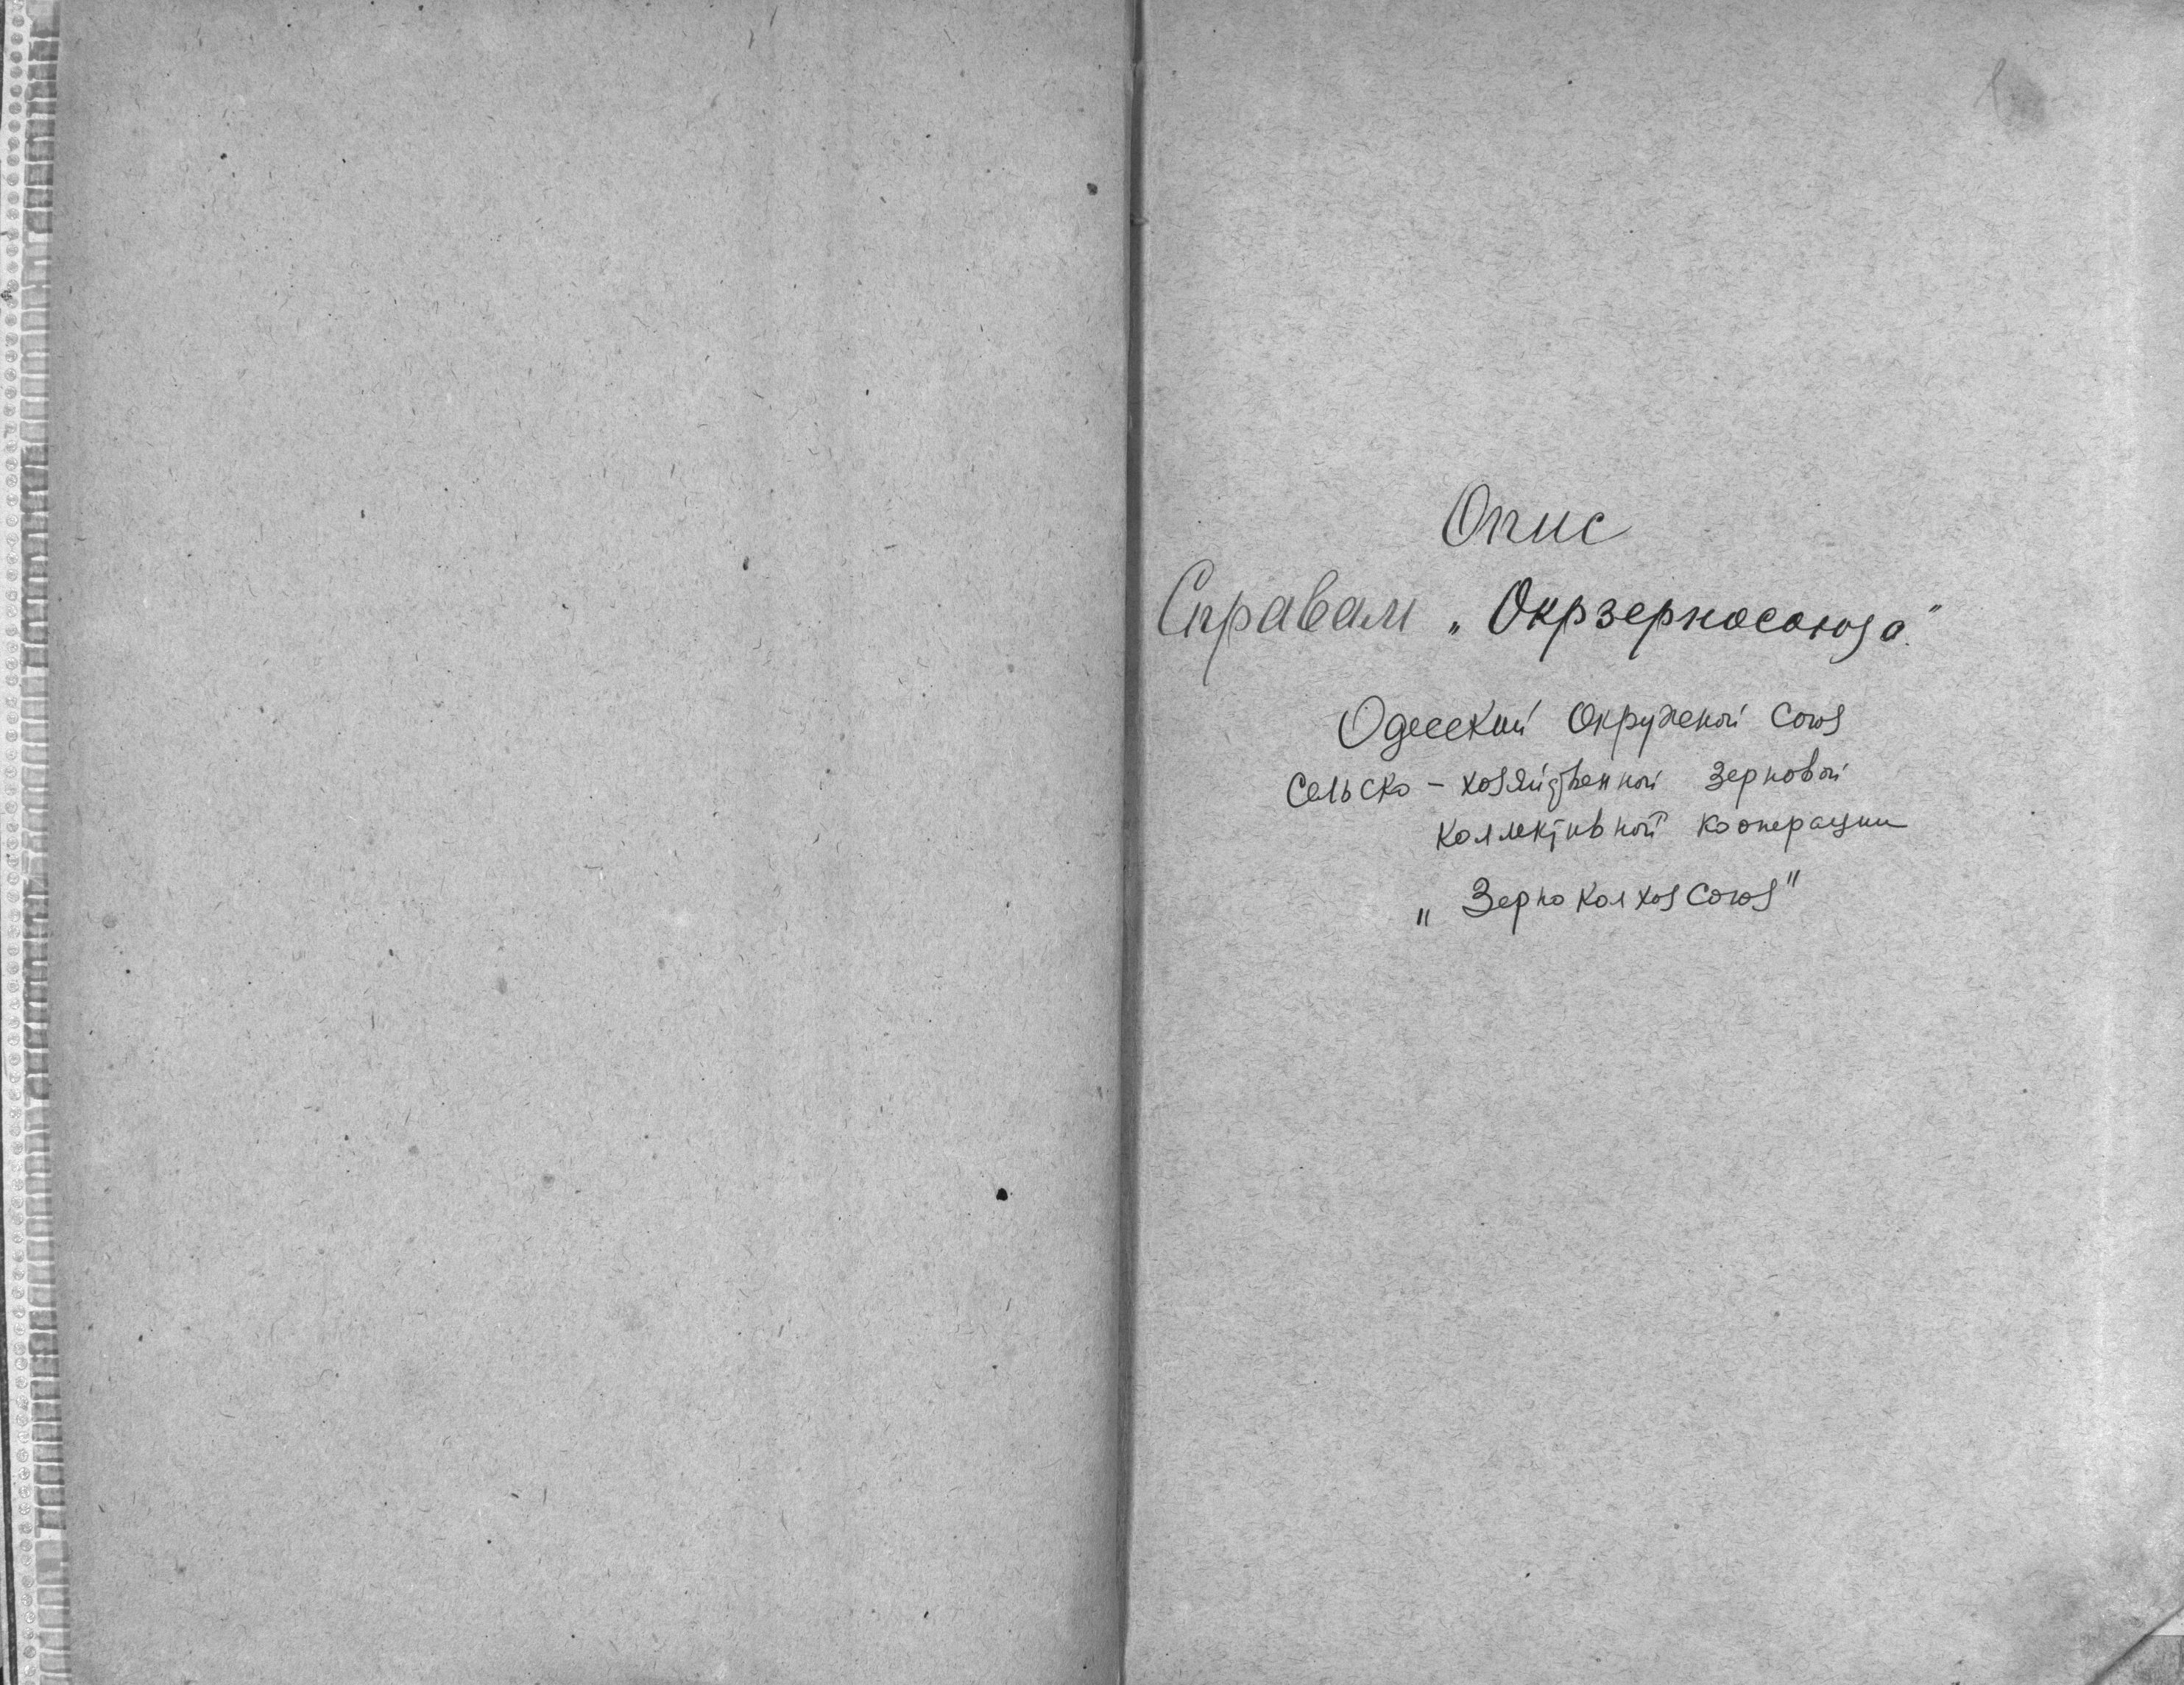 Опис
Справам „Окрзерносоюза."
Одесский Окружной Союз
Сельско-хозяйственной Зерновой
Коллективной Кооперации
„Зерноколхозсоюз"